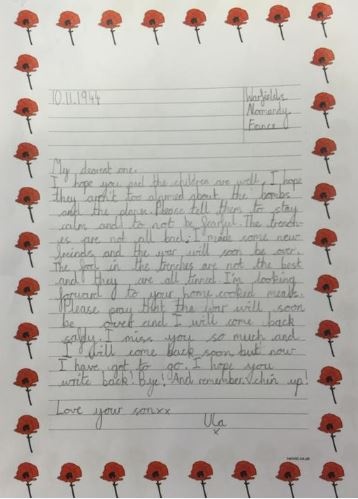 10.11.1944
Warfields
Normandy
France
My dearest one.
I hope you and the children are well, I hope
they arn't too alarmed about the bombs
and the planes. Please tell them to stay
calm and to not be fearful. The trench-
es are not all bad, I made some new
friends and the war will soon be over.
The food in the trenches are not the best
and they are all tinned I'm looking
forward to your home cooked meals.
Please pray that the war will soon
be over and I will come back
safely. I miss you so much and
I will come back soon but now
I have got to go. I hope you
write back! Bye! And remember, chin up!
Love your sonxx
Ula
x